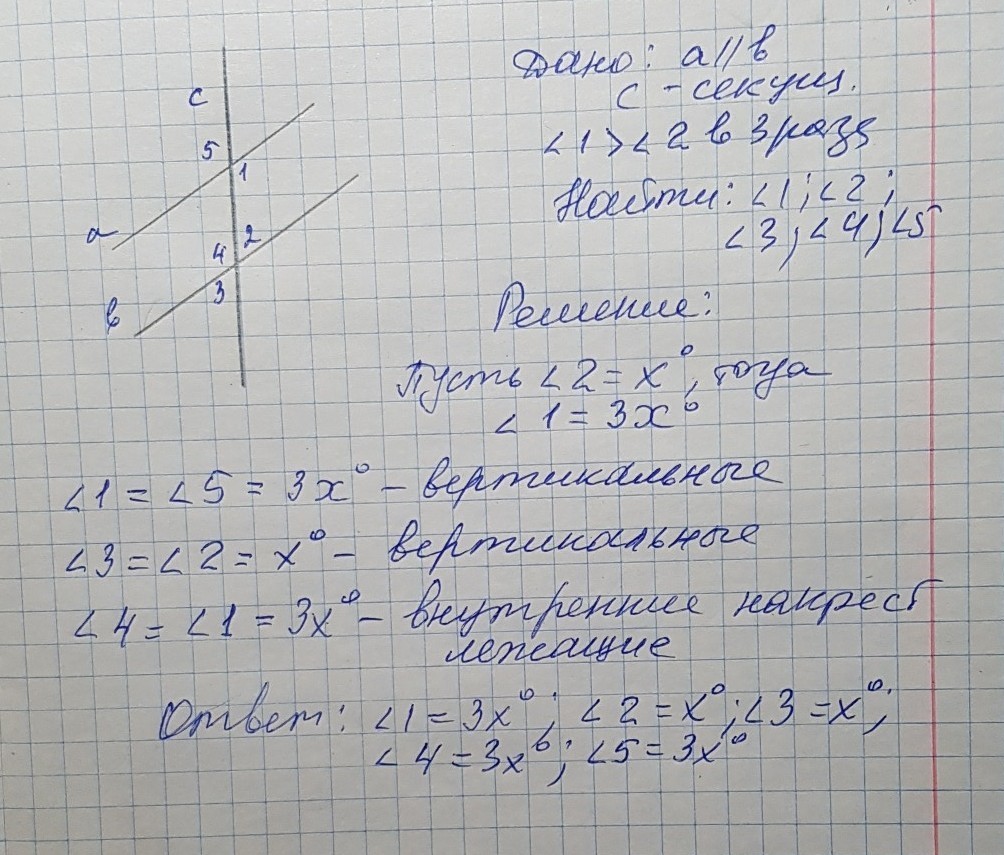 c
5
1
a
2
4
3
в
Дано: a||в
c - секущ.
<1><2 в 3 раза
Найти: <1; <2;
<3; <4; <5
Решение:
Пусть <2 = x°, тогда
<1 = 3x°
<1 = <5 = 3x° - вертикальные
<3 = <2 = x° - вертикальные
<4 = <1 = 3x° - внутренние накрест
лежащие
Ответ: <1 = 3x°; <2 = x°; <3 = x°;
<4 = 3x°; <5 = 3x°